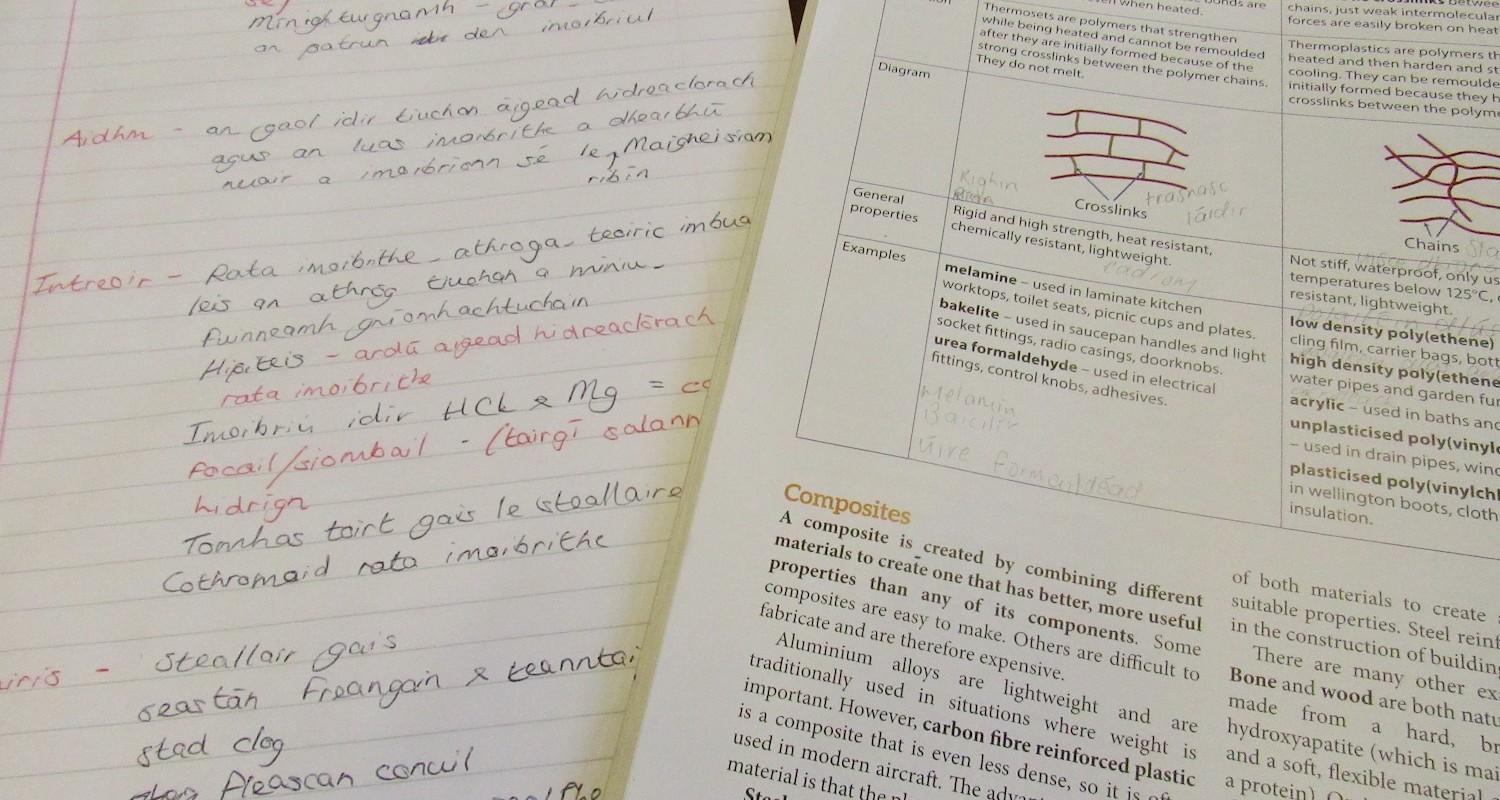 mínighturgnamh - graf
an patrun den imoibriul
Aidhm - an gaol idir tiuchan áigead hidreaclorach
agus an luas imoibrithe a dhearbhú
nuair a imoibrionn sé le, Maigheisiam
ribín
Intreoir - Rata imoibrithe - athroga - teoiric imbua
leis an athróg tiuchan a miniu -
fuinneamh gníomhachtuchain
Hipiteis - ardú aigead hidreaclórach
rata imoibrithe
Imoibriú idir HCl & Mg =
focail/siombail - (táirgí salann
hidrigin
Tomhas toirt gais le steallaire
Cothromaid rata imoibrithe
iris - steallair gais
seastán Freangain & teanntai
stad clog
Pleascan conuil
even when heated.
Thermosets are polymers that strengthen
while being heated and cannot be remoulded
after they are initially formed because of the
strong crosslinks between the polymer chains.
They do not melt.
chains, just weak intermolecular
forces are easily broken on heat
Thermoplastics are polymers th
heated and then harden and st
cooling. They can be remoulde
initially formed because they h
crosslinks between the polyme
Diagram
Righin
Crosslinks
trasnasc
láidir
Chains
General
properties
Rigid and high strength, heat resistant,
chemically resistant, lightweight.
éadrom
Not stiff, waterproof, only us
temperatures below 125°C,
resistant, lightweight.
Examples
melamine – used in laminate kitchen
worktops, toilet seats, picnic cups and plates.
bakelite – used in saucepan handles and light
socket fittings, radio casings, doorknobs.
urea formaldehyde – used in electrical
fittings, control knobs, adhesives.
Melamin
Baicilít
Úire formaildéad
low density poly(ethene)
cling film, carrier bags, bott
high density poly(ethene
water pipes and garden fur
acrylic – used in baths and
unplasticised poly(vinylc
– used in drain pipes, wind
plasticised poly(vinylchl
in wellington boots, cloth
insulation.
Composites
A composite is created by combining different
materials to create one that has better, more useful
properties than any of its components. Some
composites are easy to make. Others are difficult to
fabricate and are therefore expensive.
Aluminium alloys are lightweight and are
traditionally used in situations where weight is
important. However, carbon fibre reinforced plastic
is a composite that is even less dense, so it is
used in modern aircraft. The
material is that the
of both materials to create
suitable properties. Steel reinf
in the construction of building
There are many other ex
Bone and wood are both natu
made from a hard, br
hydroxyapatite (which is mai
and a soft, flexible material
a protein).